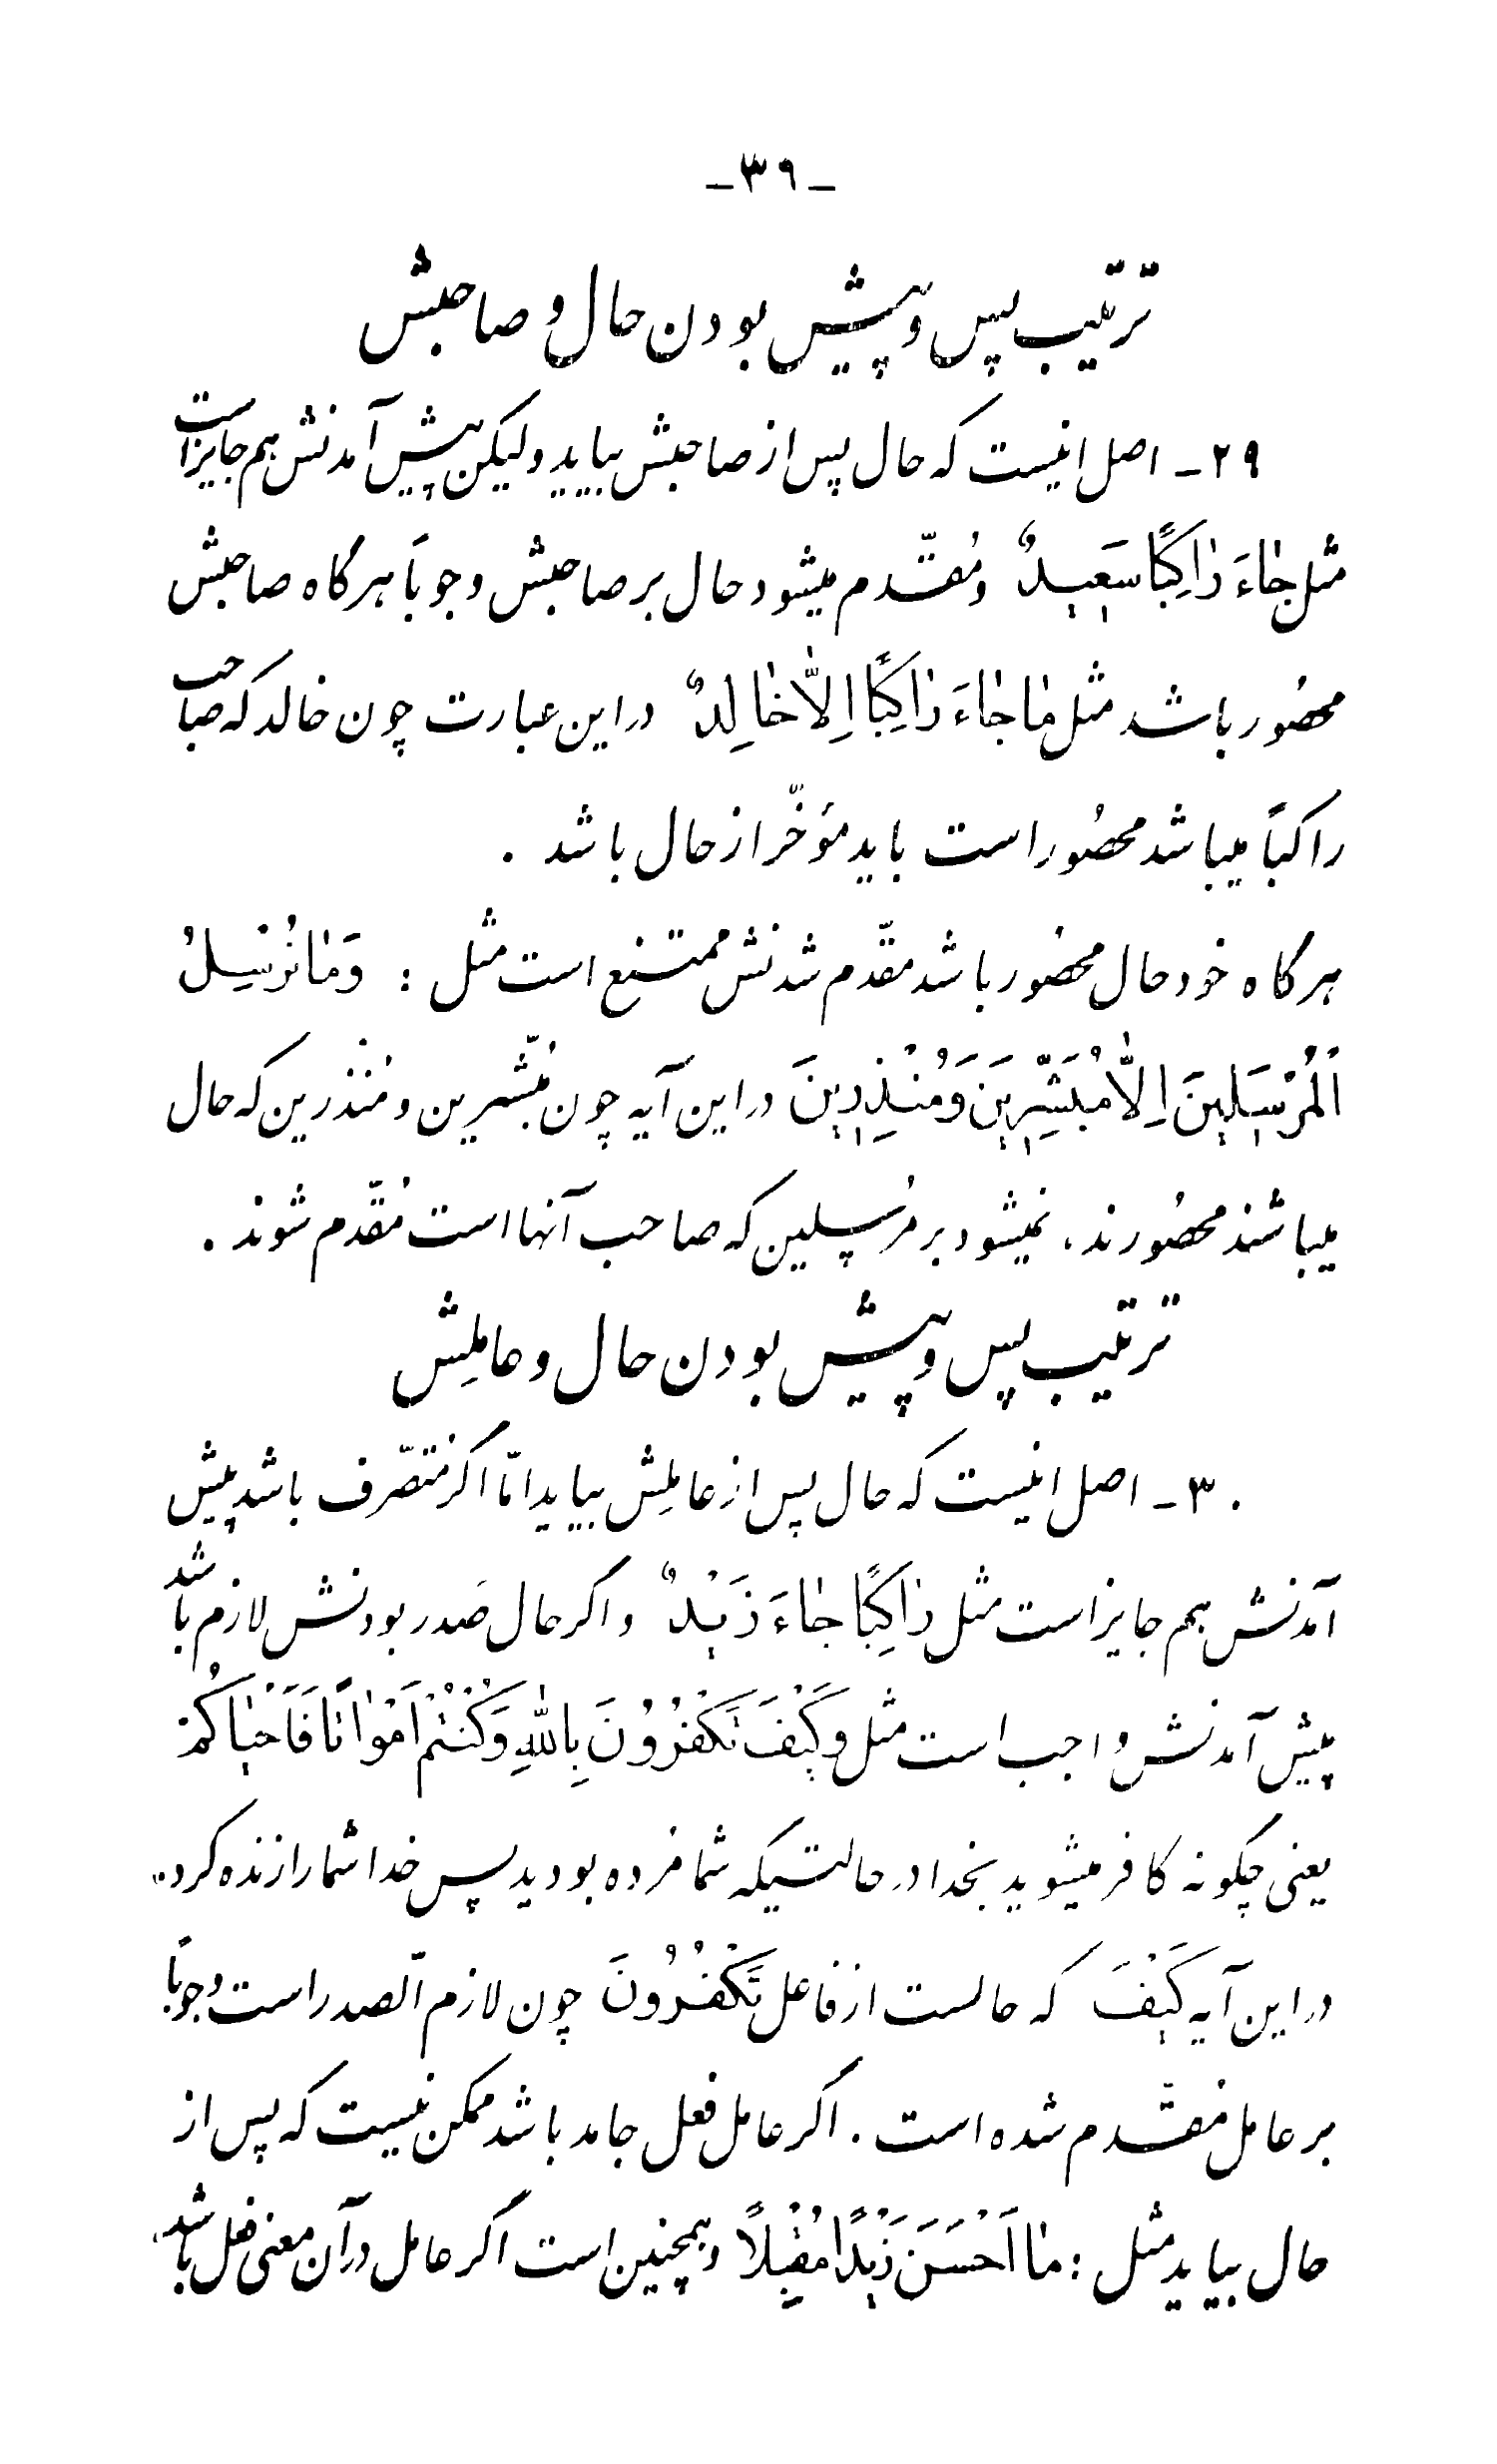 -۳۹-
ترتیب پس و پیش بودن حال و صاحبش
۲۹- اصل اینست که حال پس از صاحبش بیاید ولیکن پیش آمدنش هم جایز است
مثل جٰاءَ رٰاکِبًا سَعیدٌ ومُقدّم میشود حال بر صاحبش وجوباً هرگاه صاحبش
محصُور باشد مثل مٰا جٰاءَ رٰاکِبًا اِلاّٰ خٰالِدٌ در این عبارت چون خالد که صاحب
راکباً میباشد محصُور است باید مؤخّر از حال باشد .
هرگاه خود حال محصُور باشد مقدّم شدنش ممتنع است مثل : وَمٰا نُرْسِلُ
اَلْمُرْسَلینَ اِلاّٰ مُبَشِّرینَ وَمُنْذِرینَ در این آیه چون مُبّشرین و مُنذرین که حال
میباشند محصُورند، نمیشود بر مُرسلین که صاحب آنها است مُقدّم شوند .
ترتیب پس و پیش بودن حال و عامِلِش
۳۰- اصل اینست که حال پس از عامِلِش بیاید امّا اگر مُتصّرف باشد پیش
آمدنش هم جایز است مثل رٰاکِبًا جٰاءَ زَیْدٌ و اگر حال صَدر بودنش لازم باشد
پیش آمدنش واجب است مثل وکَیْفَ تَکْفُرُوُنَ بِاللّٰهِ وَکُنْتُمْ اَمْوٰاتًا فَاَحْیٰاکُمْ
یعنی چگونه کافر میشوید بخدا در حالتیکه شما مُرده بودید پس خدا شما را زنده کرد..
در این آیه کَیْفَ که حالست از فاعل تَکْفُرُونَ چون لازم الّصدر است وُجوباً
بر عامل مُقدّم شده است . اگر عامل فعل جامد باشد ممکن نیست که پس از
حال بیاید مثل : مٰا اَحْسَنَ زَیْدًا مُقْبِلاً وهمچنین است اگر عامل در آن معنی فعل باشد